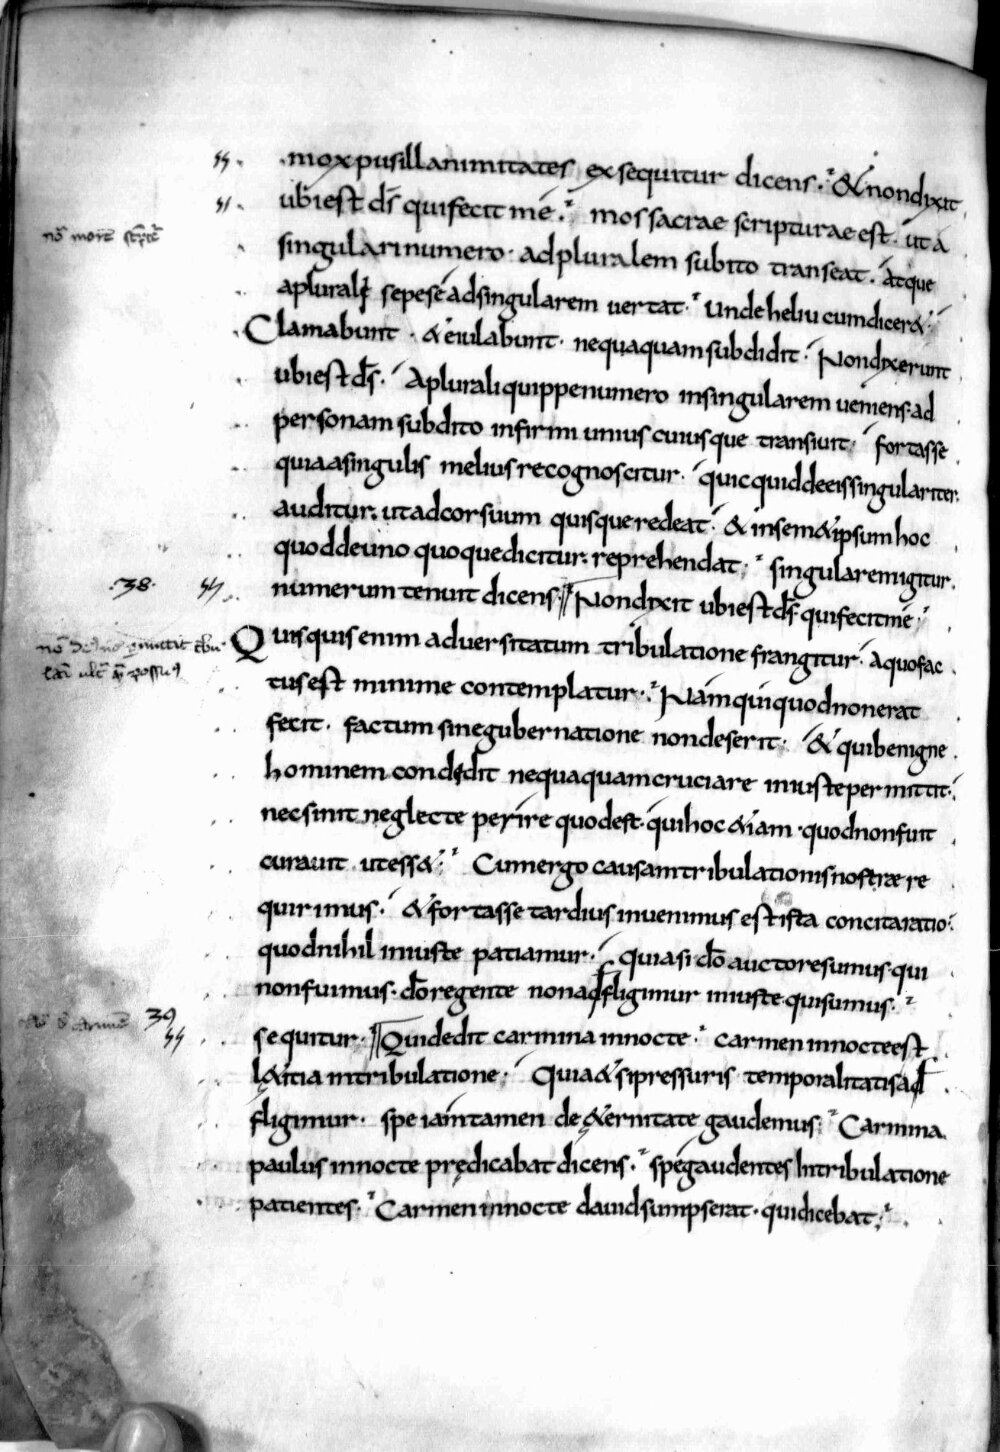 mox pusillanimitates exsequitur dicens. & non dixit
ubi est ds̄ qui fecit mē. mos sacrae scripturae est. ut a
nō morē scptē
singulari numero. ad pluralem subito transeat. Atque
a plurale sepe se ad singularem vertat. Unde heliu cum dicer&.
Clamabunt. & eiulabunt. nequaquam subdidit. Non dixerunt
ubi est ds̄. A plurali quippe numero in singularem veniens. ad
personam subdito infirmi unius cuiusque transiuit. fortasse
quia a singulis melius recognoscitur. quicquid de eis singulariter.
auditur. ut ad cor suum quisque redeat. & in sem&ipsum hoc
quod de uno quoque dicitur. reprehendat. singularem igitur.
.38. numerum tenuit dicens. Non dixit ubi est ds̄ qui fecit mē.
Quisquis enim adversitatum tribulatione frangitur. a quo fac
tus est minime contemplatur. Nam qui quod non erat
fecit. factum sine gubernatione non deserit. & qui benigne
hominem condędit nequaquam cruciare iniuste permittit.
nec sinit neglecte perire quod est. qui hoc &iam. quod non fuit
curauit ut ess&. Cum ergo causam tribulationis nostrae re
quirimus. & fortasse tardius invenimus est ista concita ratio.
quod nihil iniuste patiamur. quia si dō auctore sumus qui
non fuimus. dō regente non adfligimur iniuste qui sumus.
39 sequitur. Qui dedit carmina in nocte. carmen in nocte est
l&itia in tribulatione. Quia & si pressuris temporalitatis ad
fligimur. spe iam tamen de &ernitate gaudemus. Carmina
paulus in nocte prędicabat dicens. spe gaudentes In tribulatione
patientes. Carmen in nocte david sumpserat. qui dicebat.